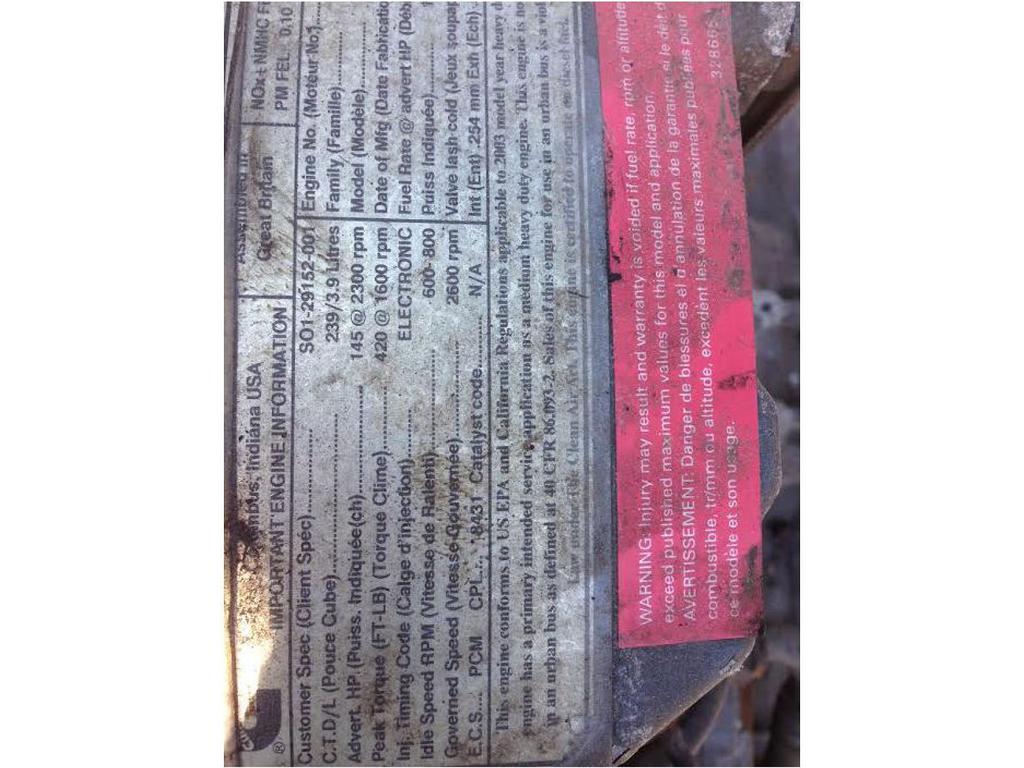 Columbus, Indiana USA
IMPORTANT ENGINE INFORMATION
Assembled in
Great Britain
NOx+ NMHC F
PM FEL 0.10
Customer Spec (Client Spéc) SO1-29152-001
C.T.D/L (Pouce Qube) 239/3.9 Litres
Advert. HP (Puiss. Indiquée(ch) 145 @ 2300 rpm
Peak Torque (FT-LB) (Torque Clime) 420 @ 1600 rpm
Inj. Timing Code (Calge d'injection) ELECTRONIC
Idle Speed RPM (Vitesse de Ralenti) 600- 800
Governed Speed (Vitesse Gouvernée) 2600 rpm
E.C.S.... PCM CPL... 8431 Catalyst code N/A
Engine No. (Moteur No.)
Family (Famille)
Model (Modèle)
Date of Mfg (Date Fabricatio
Fuel Rate @ advert HP (Déb
Puiss Indiquée)
Valve lash cold (Jeux soupap
Int (Ent) .254 mm Exh (Ech)
This engine conforms to US EPA and California Regulations applicable to 2003 model year heavy d
engine has a primary intended service application as a medium heavy duty engine. This engine is no
in an urban bus as defined at 40 CFR 86.093-2. Sales of this engine for use in an urban bus is a viol
Law under the Clean Air Act. This engine is certified to operate on diesel fuel.
WARNING: Injury may result and warranty is voided if fuel rate, rpm or altitude
exceed published maximum values for this model and application.
AVERTISSEMENT: Danger de blessures et d'annulation de la garantie si le déit d
combustible, tr/mm ou altitude, excedent les valeurs maximales publiées pour
ce modèle et son usage.